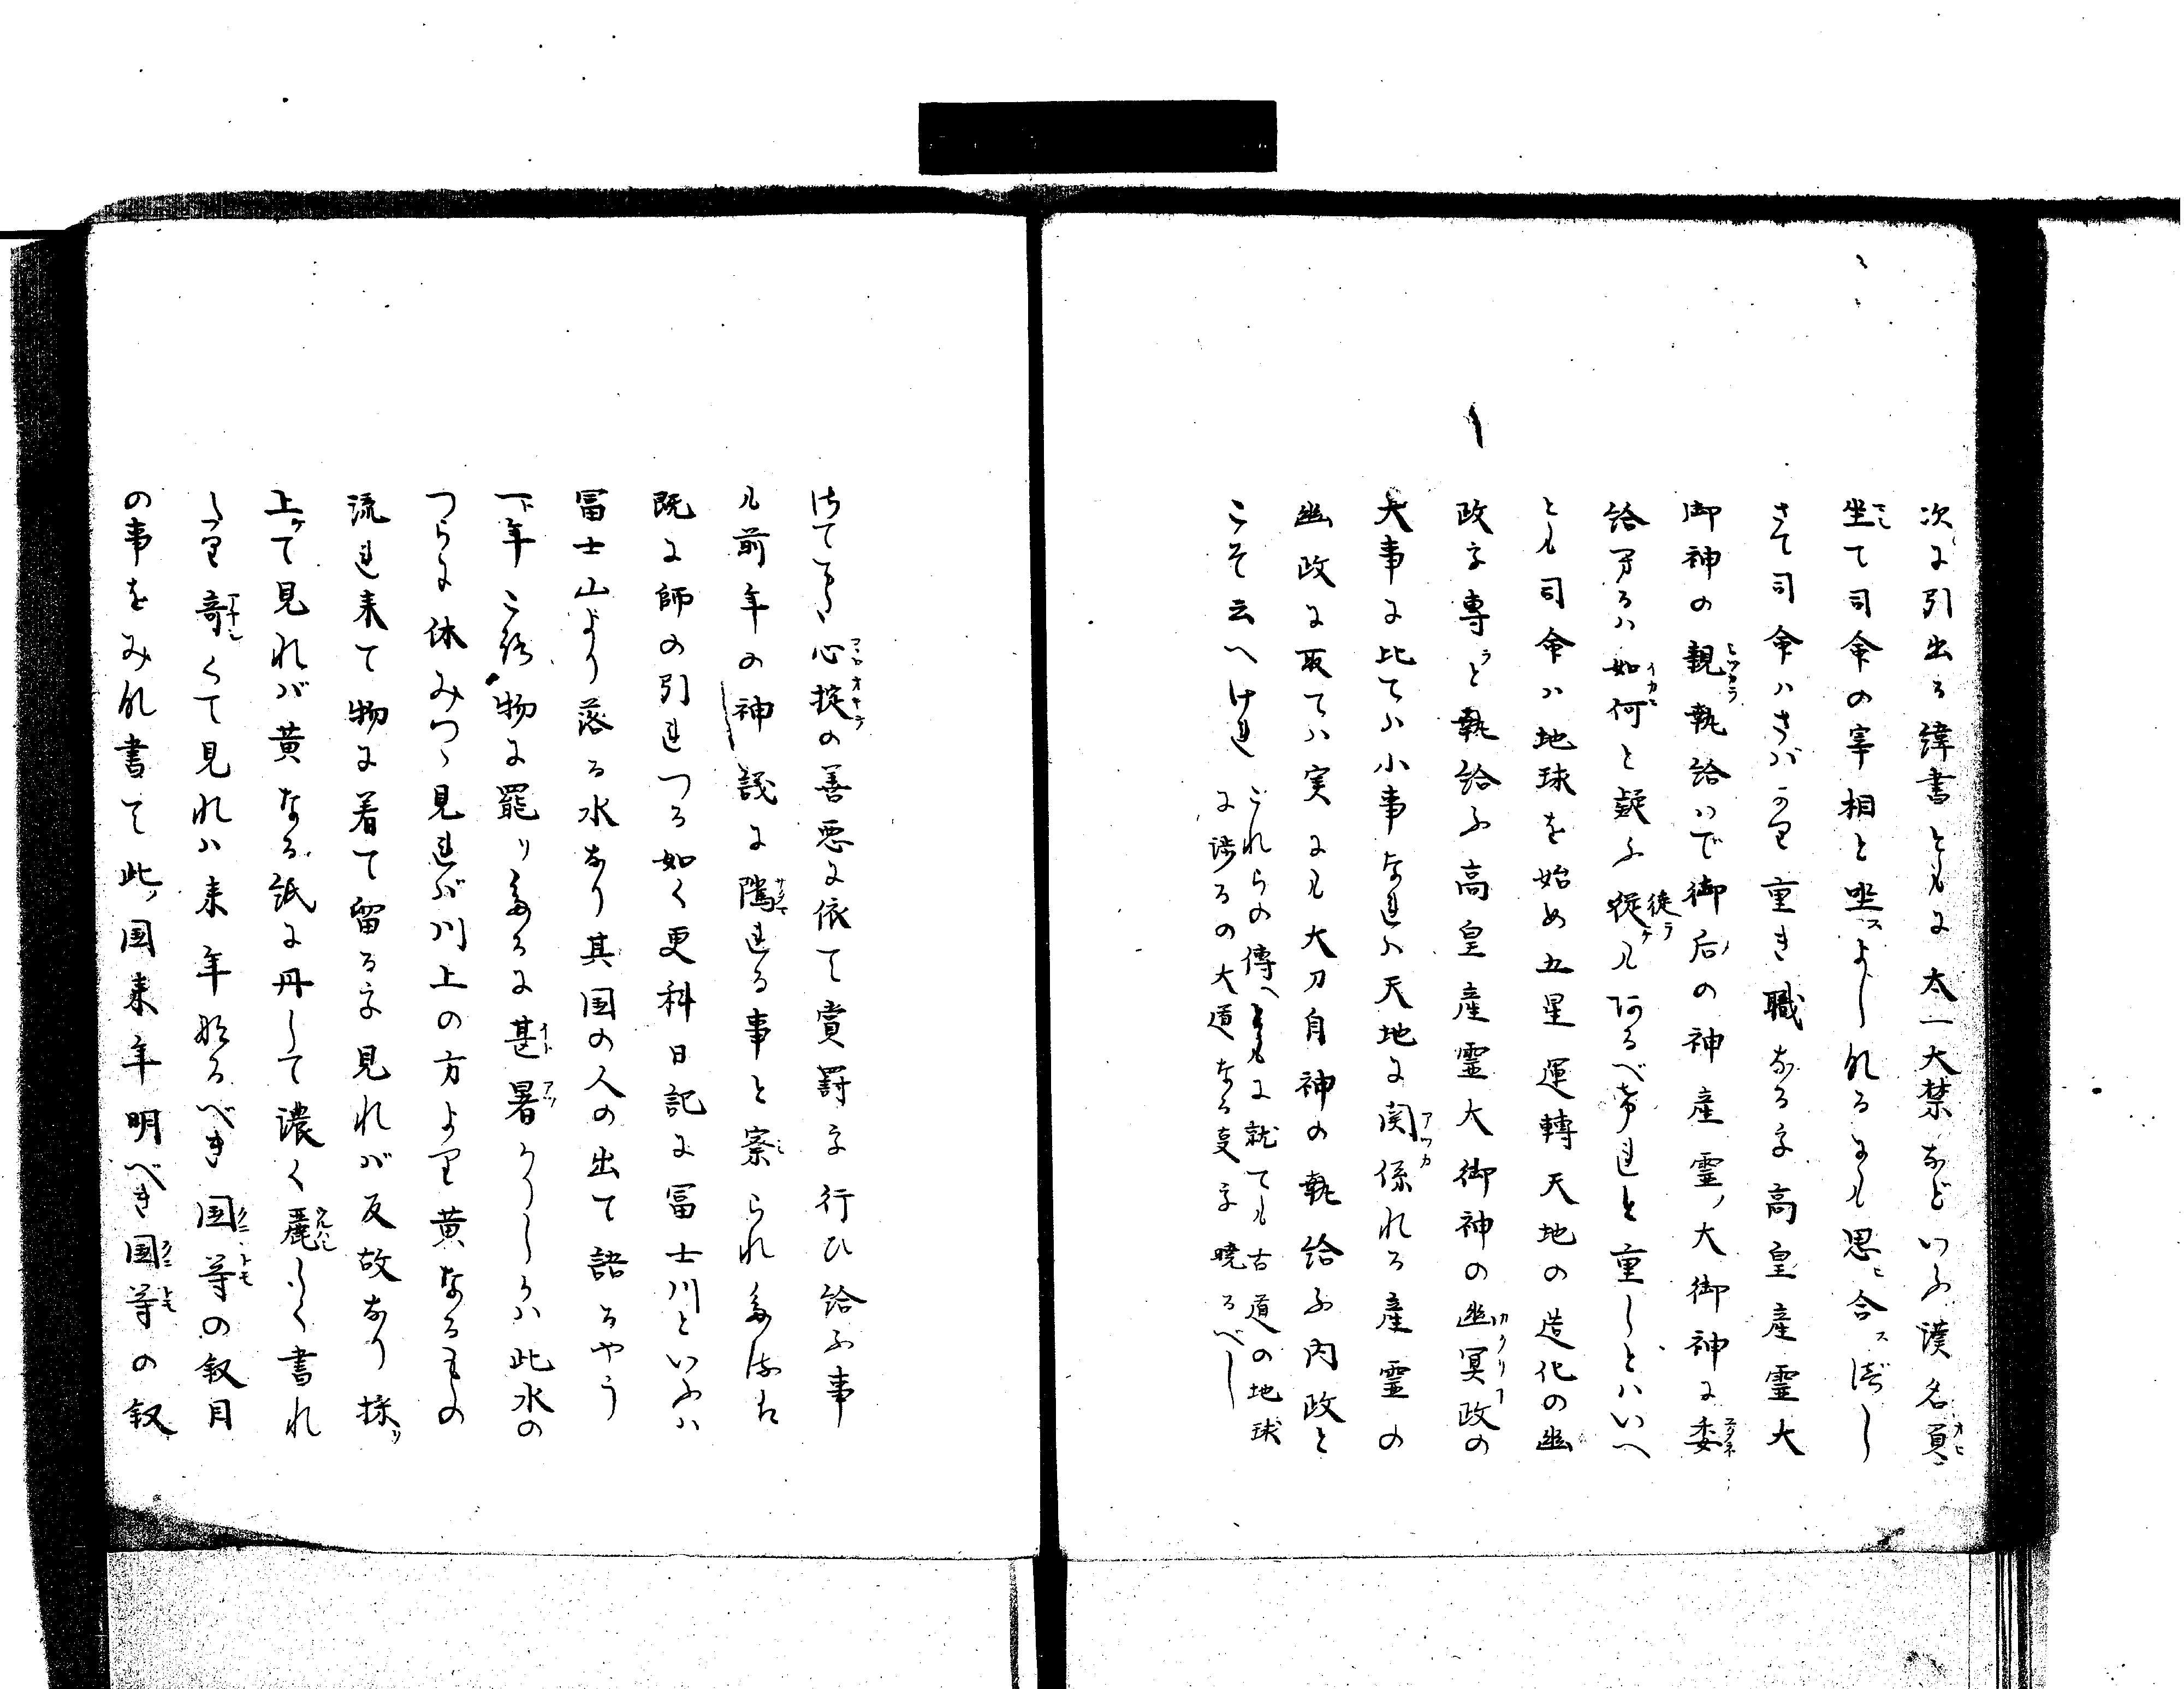 次に引出る緯書ともに太一大禁などいふ漢名負
坐て司命の宰相と坐スよし見るにも思ヒ合スべし
さて司命ハさバかり重き職なるを高皇産霊大
御神の親執給ハで御后の神産霊ノ大御神に委
給するハ如何と疑ふ徒もあるべけれと重しとハいへ
とも司命ハ地球を始め五星運轉天地の造化の幽
政を専ラと執給ふ高皇産霊大御神の幽冥政の
大事に比てハ小事なれハ天地に関係れる産霊の
幽政に取てハ実にも大刀自神の執給ふ内政と
こそ云へけれ
これらの傳へともに就ても古道の地球
に渉るの大道なる事を曉るべし
けてき心掟の善悪に依て賞罰を行ひ給ふ事
も前年の神議に隲れる事と察られ
既に師の引れつる如く更科日記に冨士川といふハ
冨士山より落る水なり其国の人の出て語るやう
一年こ物に罷りたるに甚暑かりしかハ此水の
つらに休みつゝ見れバ川上の方より黄なるもの
流れ来て物に着て留るを見れバ反故なり採リ
上ケて見れバ黄なる紙に丹して濃く麗しく書れ
たり竒くて見れハ来年なるべき国等の叙目
の事をみな書て此ノ国来年明べき国等の叙